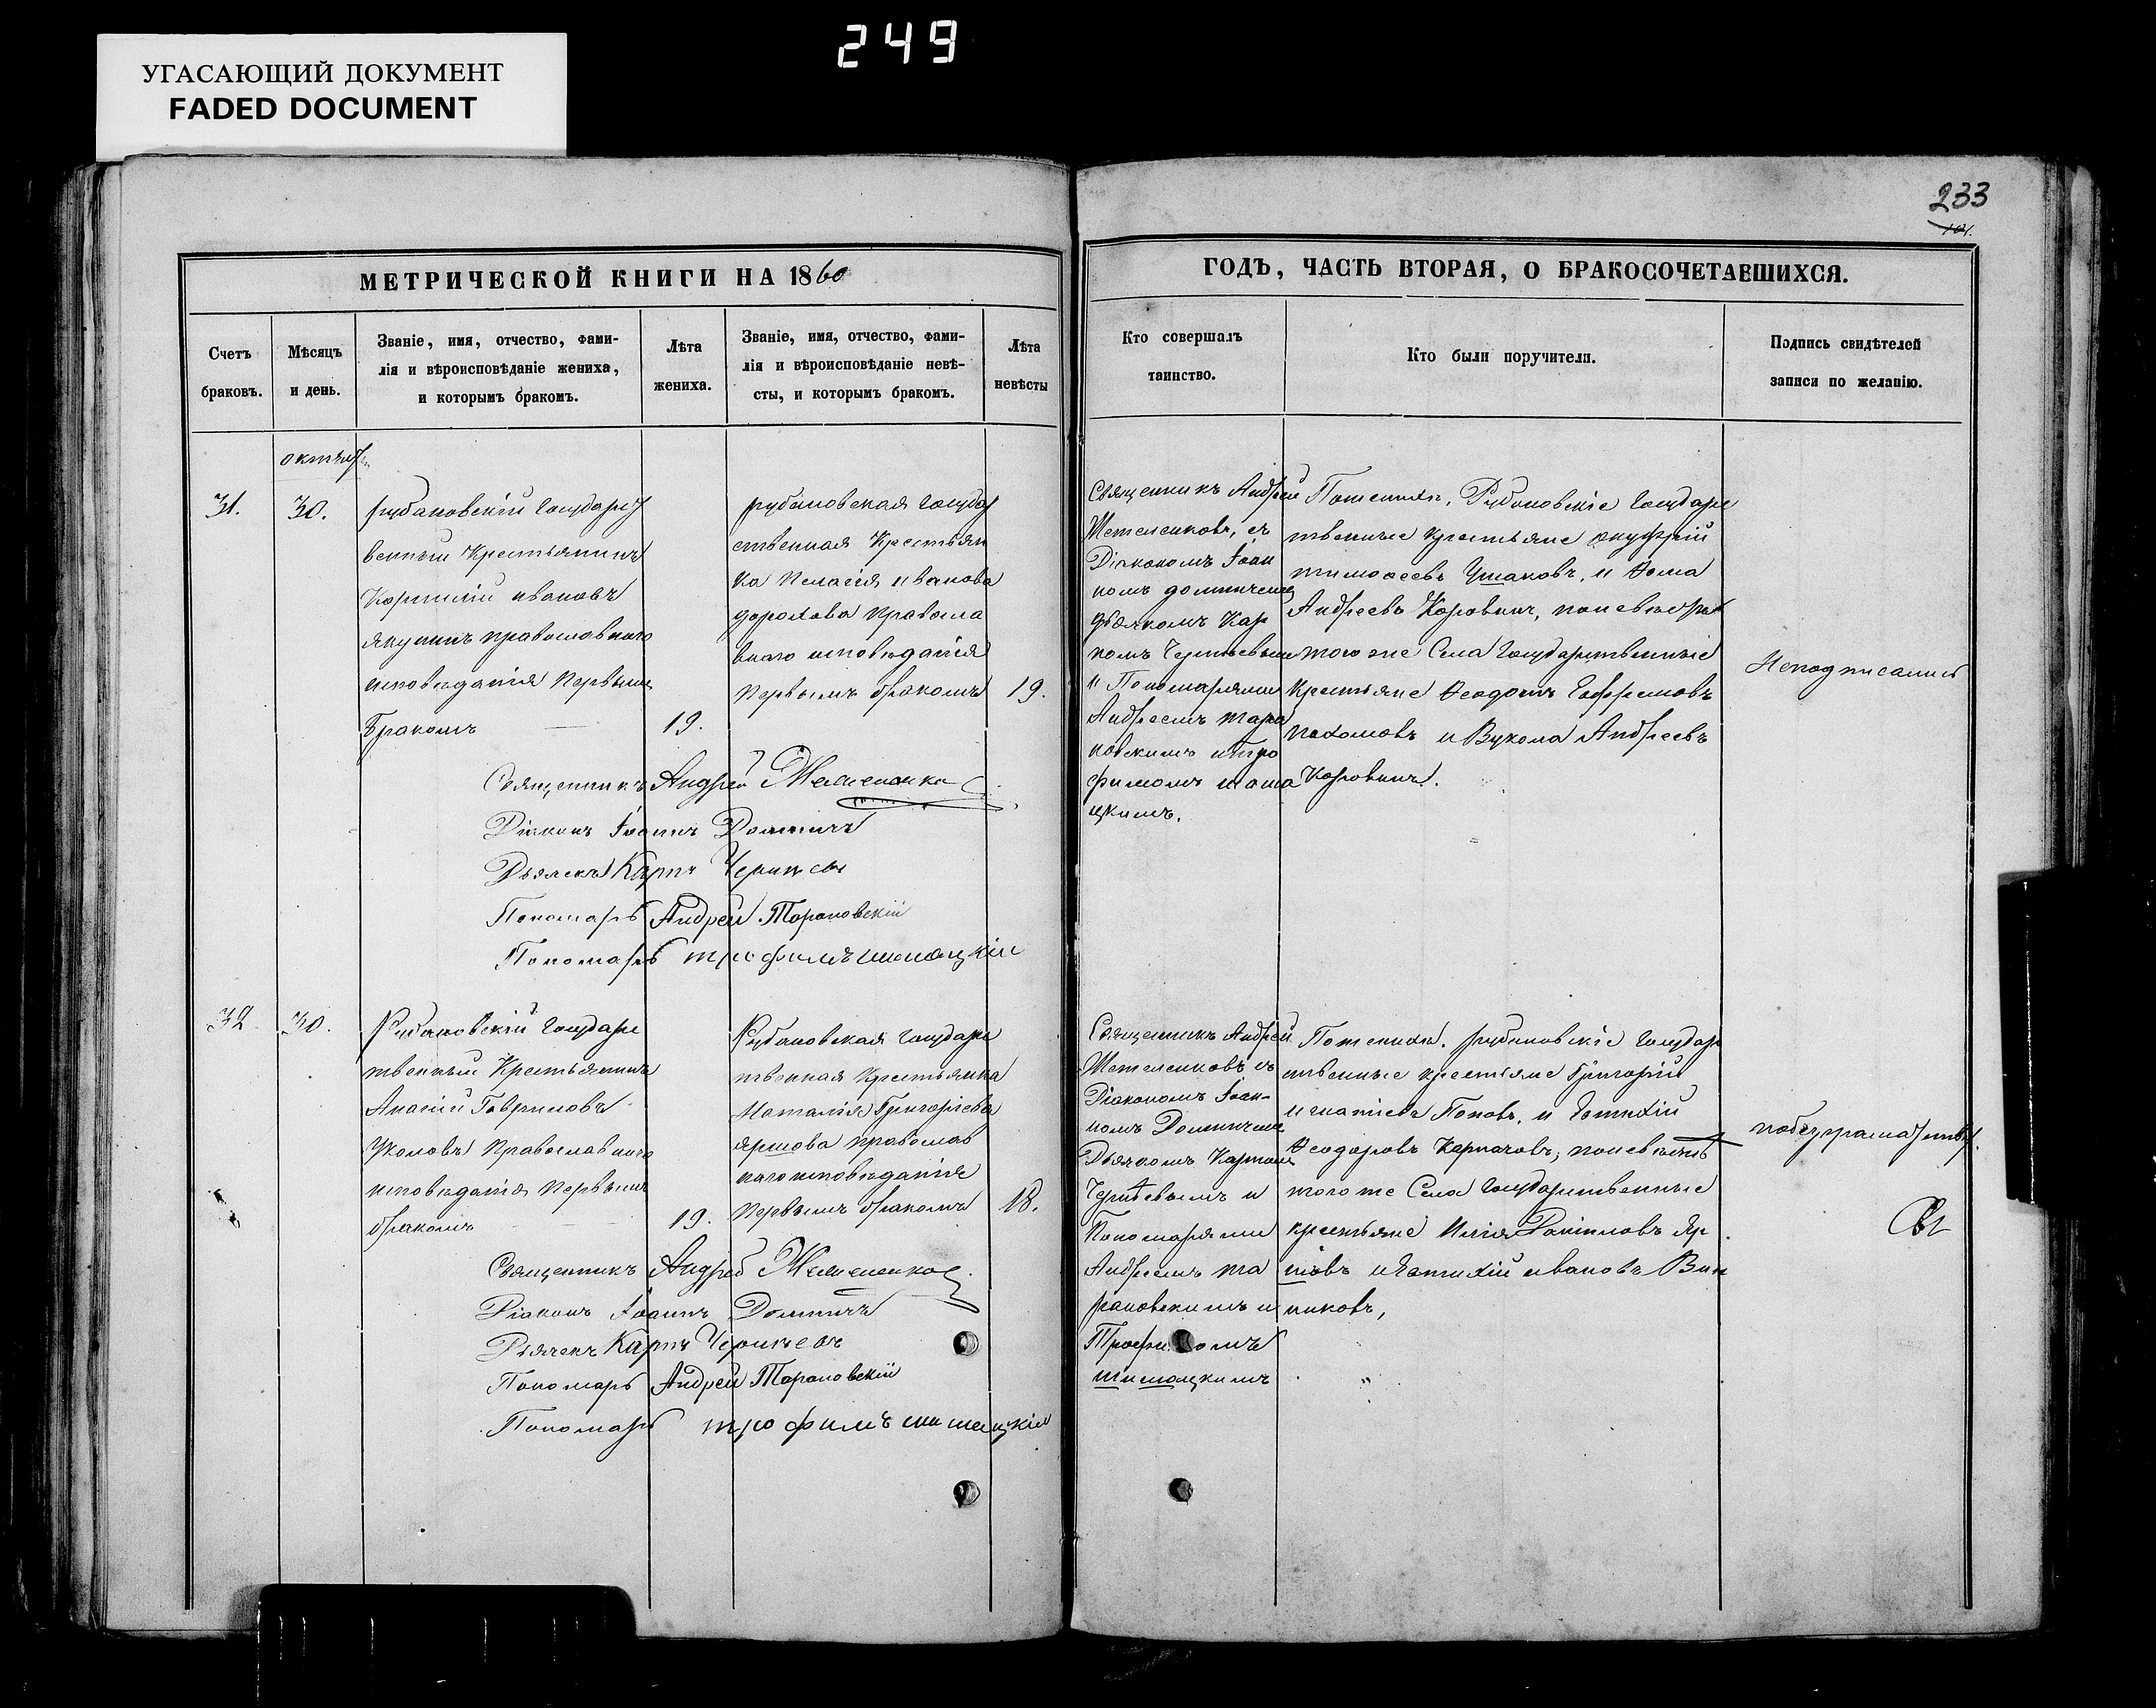 249
УГАСАЮЩИЙ ДОКУМЕНТ
FADED DOCUMENT
233
МЕТРИЧЕСКОЙ КНИГИ НА 1860
ГОДЪ, ЧАСТЬ ВТОРАЯ, О БРАКОСОЧЕТАВШИХСЯ.
Счетъ
браковъ.
Мѣсяцъ
и день.
Званіе, имя, отчество, фами-
лія и вѣроисповѣданіе жениха,
и которымъ бракомъ.
Лѣта
жениха.
Званіе, имя, отчество, фами-
лія и вѣроисповѣданіе невѣ-
сты, и которымъ бракомъ.
Лѣта
невѣсты
Кто совершалъ
таинство.
Кто были поручители.
Подпись свидѣтелей
записи по желанію.
31.
30.
рубановскій Государс
венный Крестьянинъ
Корнилій ивановъ
якунинъ православнаго
исповѣданія Первымъ
Бракомъ
19.
рубановская Государ
ственная Крестьян
ка Пелагія иванова
дорохова Правосла
внаго исповѣданія
Первымъ бракомъ
19.
Священникъ Андрей
съ
Діакономъ Іоан
номъ
дьячкомъ Кар
помъ
и Пономарями
Андреемъ тара
новскимъ и тро
фимомъ
цкимъ.
По женихѣ, Рубановскіе Государс
твенные крестьяне онуфрій
тимофеевъ Ушаковъ, и Ѳома
Андреевъ Коровинъ, по невѣстѣ
того же Села Государственные
Крестьяне Ѳеодотъ Ефремовъ
пахомовъ и Вукола Андреевъ
Коровинъ.
Неподписались
Священникъ Андрей
Діаконъ Іоаннъ
Дьячекъ Карпъ
Пономарь Андрей Тарановскій
Пономарь трофимъ
32
30.
Рубановскій Государс
твенный Крестьянинъ
Гавриловъ
Уколовъ Православнаго
исповѣданія Первымъ
бракомъ
19.
Рубановская Государс
твенная Крестьянка
Наталія Григоріева
яршова православ
наго исповѣданія
Первымъ бракомъ
18.
Священникъ Андрей
съ
Діакономъ Іоан-
номъ
Дьячкомъ Карпомъ
и
Пономарями
Андреемъ та
рановскимъ и
Трофимомъ
По женихѣ, рубановскіе Государ
ственные крестьяне Григорій
игнатіевъ Поповъ, и Евтихій
Ѳеодоровъ по невѣстѣ
того же Села Государственные
крестьяне Илія Даніиловъ Яр
шовъ и Евтихій ивановъ Вин
никовъ,
Священникъ Андрей
Діаконъ Іоаннъ
Дьячекъ Карпъ
Пономарь Андрей Тарановскій
Пономарь трофимъ